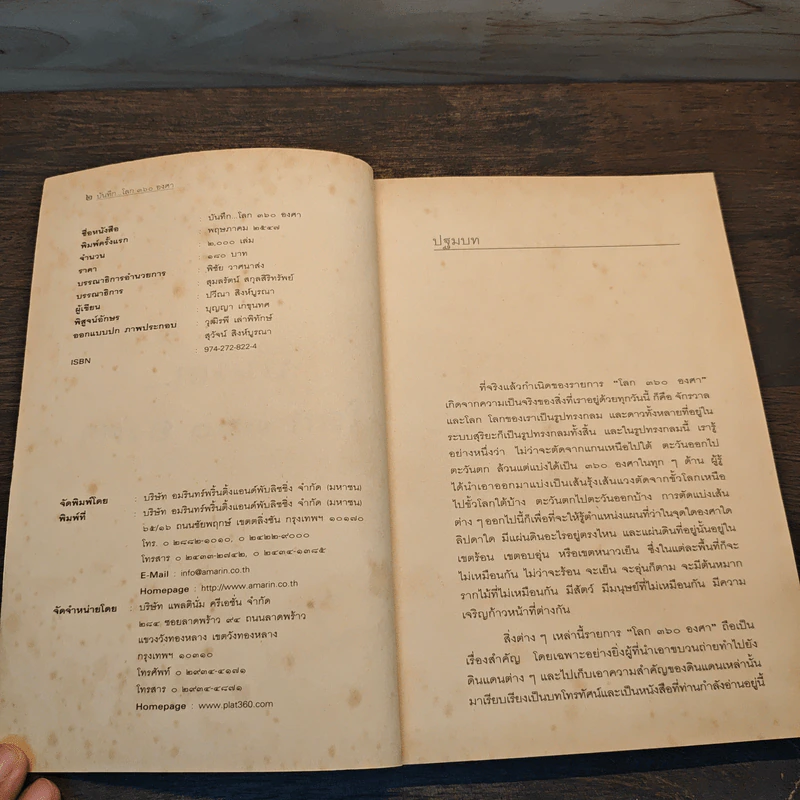 ๒ บันทึก...โลก ๓๖๐ องศา
ชื่อหนังสือ : บันทึก...โลก ๓๖๐ องศา
พิมพ์ครั้งแรก : พฤษภาคม ๒๕๔๗
จำนวน : ๒,๐๐๐ เล่ม
ราคา : ๑๘๐ บาท
บรรณาธิการอำนวยการ : พิชัย วาศนาส่ง
บรรณาธิการ : สุมลรัตน์ สกุลสิริทรัพย์
ผู้เขียน : ปวีณา สิงห์บูรณา
พิสูจน์อักษร : บุญญา
ออกแบบปก ภาพประกอบ : วุฒิรพี เล่าพิทักษ์
สุวัจน์ สิงห์บูรณา
ISBN : 974-272-822-4
จัดพิมพ์โดย : บริษัท อมรินทร์พริ้นติ้งแอนด์พับลิชชิ่ง จำกัด (มหาชน)
พิมพ์ที่ : บริษัท อมรินทร์พริ้นติ้งแอนด์พับลิชชิ่ง จำกัด (มหาชน)
๖๕/๑๖ ถนนชัยพฤกษ์ เขตตลิ่งชัน กรุงเทพฯ ๑๐๑๗๐
โทร. ๐ ๒๘๘๒-๑๐๑๐, ๐ ๒๔๒๒-๙๐๐๐
โทรสาร ๐ ๒๔๓๓-๒๗๔๒, ๐ ๒๔๓๔-๑๓๘๕
E-Mail : info@amarin.co.th
Homepage : http://www.amarin.co.th
จัดจำหน่ายโดย : บริษัท แพลตินั่ม ครีเอชั่น จำกัด
๒๘๔ ซอยลาดพร้าว ๙๔ ถนนลาดพร้าว
แขวงวังทองหลาง เขตวังทองหลาง
กรุงเทพฯ ๑๐๓๑๐
โทรศัพท์ ๐ ๒๙๓๔-๔๑๗๑
โทรสาร ๐ ๒๙๓๔-๔๘๗๑
Homepage : www.plat360.com
ปฐมบท
ที่จริงแล้วกำเนิดของรายการ “โลก ๓๖๐ องศา”
เกิดจากความเป็นจริงของสิ่งที่เราอยู่ด้วยทุกวันนี้ ก็คือ จักรวาล
และโลก โลกของเราเป็นรูปทรงกลม และดาวทั้งหลายที่อยู่ใน
ระบบสุริยะก็เป็นรูปทรงกลมทั้งสิ้น และในรูปทรงกลมนี้ เรารู้
อย่างหนึ่งว่า ไม่ว่าจะตัดจากแกนเหนือไปใต้ ตะวันออกไป
ตะวันตก ล้วนแต่แบ่งได้เป็น ๓๖๐ องศาในทุก ๆ ด้าน ผู้รู้
ได้นำเอาออกมาแบ่งเป็นเส้นรุ้งเส้นแวงตัดจากขั้วโลกเหนือ
ไปขั้วโลกใต้บ้าง ตะวันตกไปตะวันออกบ้าง การตัดแบ่งเส้น
ต่าง ๆ ออกไปนี้ก็เพื่อที่จะให้รู้ตำแหน่งแผนที่ว่าในจุดใดองศาใด
ลิปดาใด มีแผ่นดินอะไรอยู่ตรงไหน และแผ่นดินที่อยู่นั้นอยู่ใน
เขตร้อน เขตอบอุ่น หรือเขตหนาวเย็น ซึ่งในแต่ละพื้นที่ก็จะ
ไม่เหมือนกัน ไม่ว่าจะร้อน จะเย็น จะอุ่นก็ตาม จะมีต้นหมาก
รากไม้ที่ไม่เหมือนกัน มีสัตว์ มีมนุษย์ที่ไม่เหมือนกัน มีความ
เจริญก้าวหน้าที่ต่างกัน
สิ่งต่าง ๆ เหล่านี้รายการ “โลก ๓๖๐ องศา” ถือเป็น
เรื่องสำคัญ โดยเฉพาะอย่างยิ่งผู้ที่นำเอาขบวนถ่ายทำไปยัง
ดินแดนต่าง ๆ และไปเก็บเอาความสำคัญของดินแดนเหล่านั้น
มาเรียบเรียงเป็นบทโทรทัศน์และเป็นหนังสือที่ท่านกำลังอ่านอยู่นี้